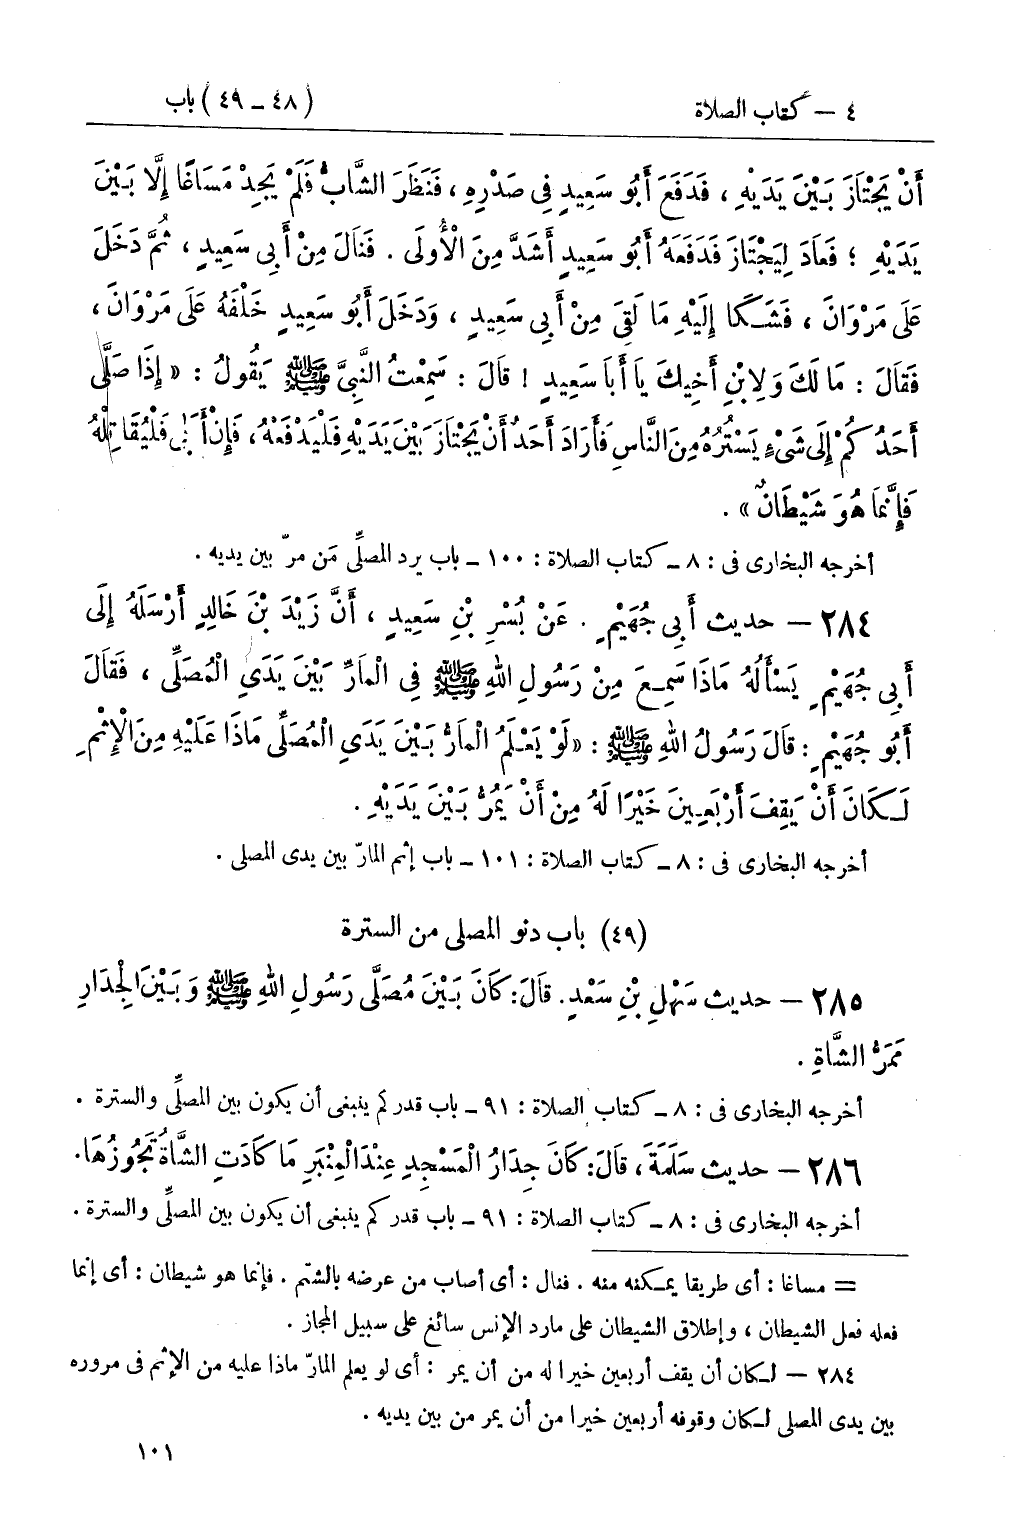 ٤ – كتاب الصلاة (٤٨ – ٤٩) باب
أَنْ يَجْتَازَ بَيْنَ يَدَيْهِ ، فَدَفَعَ أَبُو سَعِيدٍ فِى صَدْرِهِ ، فَنَظَرَ الشَّابُّ فَلَمْ يَجِدْ مَسَاغًا إِلَّا بَيْنَ
يَدَيْهِ ؛ فَعَادَ لِيَجْتَازَ فَدَفَعَهُ أَبُو سَعِيدٍ أَشَدَّ مِنَ الْأُولَى . فَنَالَ مِنْ أَبِى سَعِيدٍ ، ثُمَّ دَخَلَ
عَلَى مَرْوَانَ ، فَشَكَا إِلَيْهِ مَا لَقِىَ مِنْ أَبِى سَعِيدٍ ، وَدَخَلَ أَبُو سَعِيدٍ خَلْفَهُ عَلَى مَرْوَانَ ،
فَقَالَ : مَا لَكَ وَلِابْنِ أَخِيكَ يَا أَبَا سَعِيدٍ ! قَالَ : سَمِعْتُ النَّبِىَّ ﷺ يَقُولُ : «إِذَا صَلَّى
أَحَدُكُمْ إِلَى شَىْءٍ يَسْتُرُهُ مِنَ النَّاسِ فَأَرَادَ أَحَدٌ أَنْ يَجْتَازَ بَيْنَ يَدَيْهِ فَلْيَدْفَعْهُ، فَإِنْ أَبَى فَلْيُقَاتِلْهُ
فَإِنَّمَا هُوَ شَيْطَانٌ» .
أخرجه البخارى فى : ٨ – كتاب الصلاة : ١٠٠ – باب يرد المصلِّى مَن مرّ بين يديه .
٢٨٤ – حديث أَبِى جُهَيْمٍ . عَنْ بُسْرِ بْنِ سَعِيدٍ ، أَنَّ زَيْدَ بْنَ خَالِدٍ أَرْسَلَهُ إِلَى
أَبِى جُهَيْمٍ يَسْأَلُهُ مَاذَا سَمِعَ مِنْ رَسُولِ اللهِ ﷺ فِى الْمَارِّ بَيْنَ يَدَىِ الْمُصَلِّى ، فَقَالَ
أَبُو جُهَيْمٍ : قَالَ رَسُولُ اللهِ ﷺ : «لَوْ يَعْلَمُ الْمَارُّ بَيْنَ يَدَىِ الْمُصَلِّى مَاذَا عَلَيْهِ مِنَ الْإِثْمِ
لَكَانَ أَنْ يَقِفَ أَرْبَعِينَ خَيْرًا لَهُ مِنْ أَنْ يَمُرَّ بَيْنَ يَدَيْهِ .
أخرجه البخارى فى : ٨ – كتاب الصلاة : ١٠١ – باب إثم المارّ بين يدى المصلى .
(٤٩) باب دنو المصلى من السترة
٢٨٥ – حديث سَهْلِ بْنِ سَعْدٍ. قَالَ: كَانَ بَيْنَ مُصَلَّى رَسُولِ اللهِ ﷺ وَبَيْنَ الْجِدَارِ
مَمَرُّ الشَّاةِ .
أخرجه البخارى فى : ٨ – كتاب الصلاة : ٩١ – باب قدركم ينبغى أن يكون بين المصلِّى والسترة .
٢٨٦ – حديث سَلَمَةَ ، قَالَ: كَانَ جِدَارُ الْمَسْجِدِ عِنْدَ الْمِنْبَرِ مَا كَادَتِ الشَّاةُ تَجُوزُهَا.
أخرجه البخارى فى : ٨ – كتاب الصلاة : ٩١ – باب قدركم ينبغى أن يكون بين المصلِّى والسترة .
= مساغا : أى طريقا يمكنه منه . فنال : أى أصاب من عرضه بالشتم . فإنما هو شيطان : أى إنما
فعله فعل الشيطان ، وإطلاق الشيطان على مارد الإنس سائغ على سبيل المجاز .
٢٨٤ – لكان أن يقف أربعين خيرا له من أن يمر : أى لو يعلم المارّ ماذا عليه من الإثم فى مروره
بين يدى المصلى لكان وقوفه أربعين خيرا من أن يمر من بين يديه .
١٠١